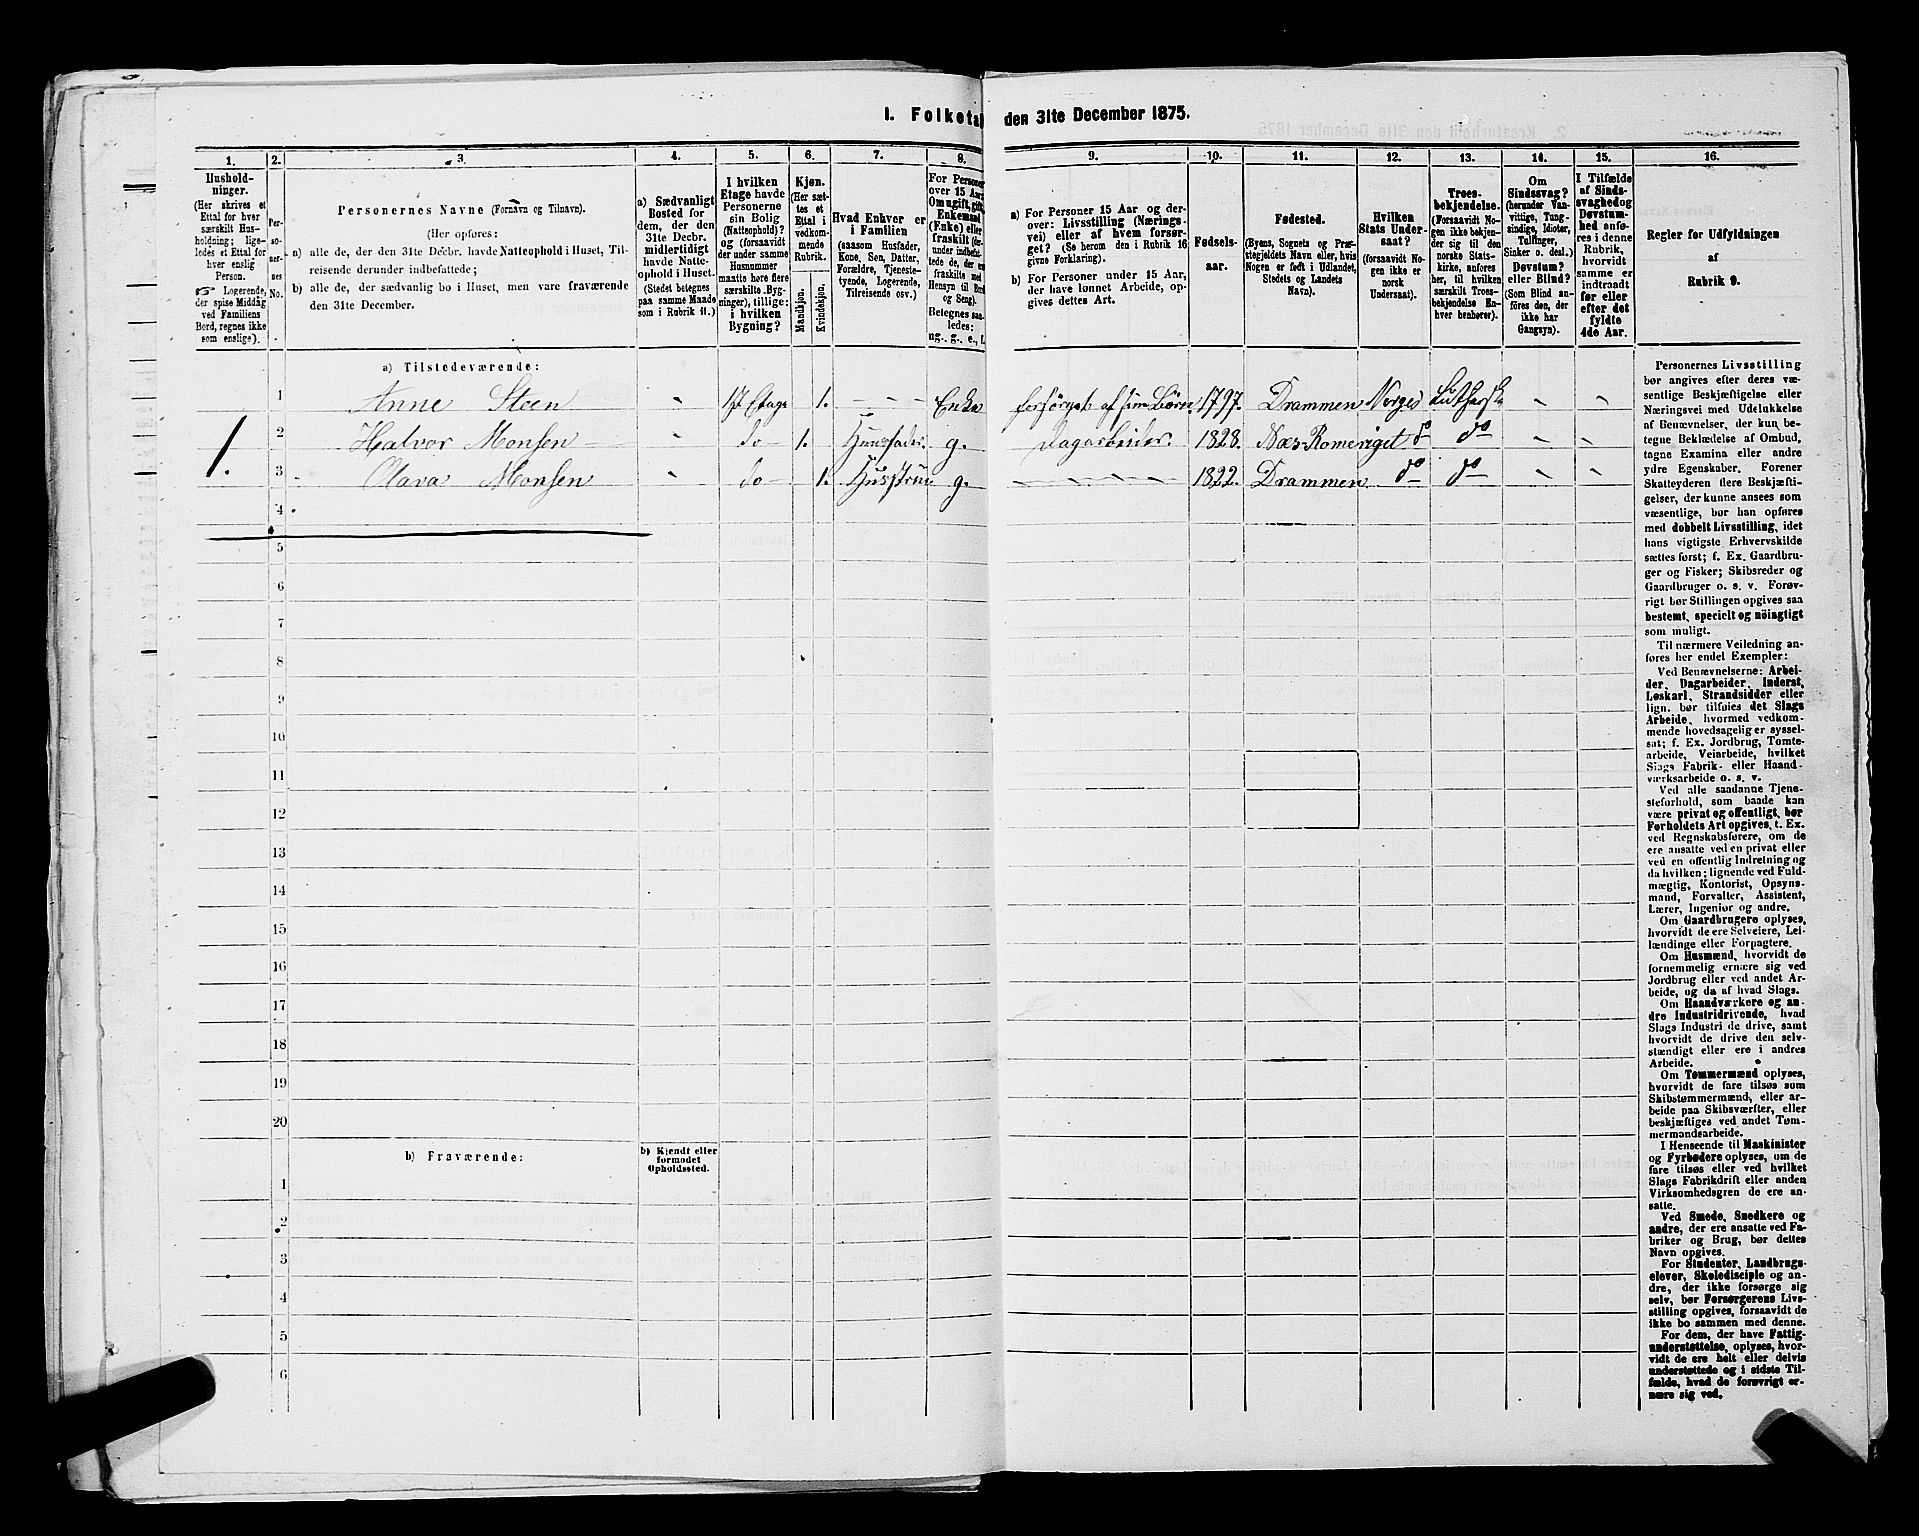 1. Folketal den 31te December 1875.
1. 2. 3. 4. 5. 6. 7. 8. 9. 10. 11. 12. 13. 14. 15. 16.
Hushold-
ninger.
(Her skrives et
Ettal for hver
særskilt Hus-
holdning; lige-
ledes et Ettal for
hver enslig
Person.
☞ Logerende,
der spise Middag
ved Familiens
Bord, regnes ikke
som enslige).
Per-
so-
ner-
nes
No.
Personernes Navne (Fornavn og Tilnavn).
(Her opføres:
a) alle de, der den 31te Decbr. havde Natteophold i Huset, Til-
reisende derunder indbefattede;
b) alle de, der sædvanlig bo i Huset, men vare fraværende
den 31te December.
a) Sædvanligt
Bosted for
dem, der den
31te Decbr.
midlertidigt
havde Natte-
ophold i Huset.
(Stedet betegnes
paa samme Maade
som i Rubrik 11.)
I hvilken
Etage havde
Personerne
sin Bolig
(Natteophold)?
og (forsaavidt
der under samme
Husnummer
maatte høre flere
særskilte Byg-
ninger), tillige:
i hvilken
Bygning?
Kjøn.
(Her sæt-
tes et
Ettal i
vedkom-
mende
Rubrik.
Mandkjøn.
Kvindekjøn.
Hvad Enhver er
i Familien
(saasom Husfader,
Kone, Søn, Datter,
Forældre, Tjeneste-
tyende, Logerende,
Tilreisende osv.)
For Personer
over 15 Aar:
Om ugift, gift,
Enkemand
(Enke) eller
fraskilt
ug., g., e., f.
a) For Personer 15 Aar og der-
over: Livsstilling (Nærings-
vei) eller af hvem forsør-
get? (Se herom den i Rubrik 16
givne Forklaring).
b) For Personer under 15 Aar,
der have lønnet Arbeide, op-
gives dettes Art.
Fødsels-
aar.
Fødested.
(Byens, Sognets og Præ-
stegjeldets Navn eller, hvis
Nogen er født i Udlandet,
Stedets og Landets
Navn).
Hvilken
Stats Under-
saat?
(forsaavidt No-
gen ikke er
norsk
Undersaat).
Troes-
bekjendelse.
(Forsaavidt No-
gen ikke bekjen-
der sig til den
norske Stats-
kirke, anføres
her, til hvilken
særskilt Troes-
bekjendelse En-
hver henhører).
Om
Sindssvag?
(herunder Van-
vittige, Tung-
sindige, Idioter,
Tullinger,
Sinker o. desl.)
Døvstum?
eller Blind?
(Som Blind an-
føres den, der
ikke har
Gangsyn).
I Tilfælde
af Sinds-
svaghed og
Døvstum-
hed anfø-
res i denne
Rubrik,
hvorvidt
samme er
indtraadt
før eller
efter det
fyldte
4de Aar.
Regler for Udfyldningen
af
Rubrik 9.
a) Tilstedeværende:
1 Anne Steen " 1st Etage 1. — — — Enke forsörget af sine Börn 1797. Drammen Norges Lutherske " "
1. 2 Halvor Monsen " do 1. Huusfader. g. Dagarbeider. 1828. Næs-Romeriget do do " "
3 Olava Monsen " do 1. Husstrue g. — — — — 1822. Drammen do do " "
4
5
6
7
8
9
10
11
12
13
14
15
16
17
18
19
20
b) Fraværende:
b) Kjendt eller
formodet
Opholdssted.
1
2
3
4
5
6
Personernes Livsstilling
bør angives efter deres væ-
sentlige Beskjæftigelse eller
Næringsvei med Udelukkelse
af Benævnelser, der kun be-
tegne Beklædelse af Ombud,
tagne Examina eller andre
ydre Egenskaber. Forener
Skatteyderen flere Beskjæfti-
gelser, der kunne ansees som
væsentlige, bør han opføres
med dobbelt Livsstilling, idet
hans vigtigste Erhvervskilde
sættes først; f. Ex. Gaardbru-
ger og Fisker; Skibsreder og
Gaardbruger o. s. v. Forøv-
rigt bør Stillingen opgives saa
bestemt, specielt og nöiagtigt
som muligt.
Til nærmere Veiledning an-
føres her endel Exempler:
Ved Benævnelserne: Arbei-
der, Dagarbeider, Inderst,
Løskarl, Strandsidder eller
lign. bør tilføies det Slags
Arbeide, hvormed vedkom-
mende hovedsagelig er syssel-
sat; f. Ex. Jordbrug, Tomte-
arbeide, Veiarbeide, hvilket
Slags Fabrik- eller Haand-
værksarbeide o. s. v.
Ved alle saadanne Tjene-
steforhold, som baade kan
være privat og offentligt, bør
Forholdets Art opgives, t. Ex.
ved Regnskabsførere, om de
ere ansatte ved en privat eller
ved en offentlig Indretning og
da hvilken; lignende ved Fuld-
mægtig, Kontorist, Opsyns-
mand, Forvalter, Assistent,
Lærer, Ingeniør og andre.
Om Gaardbrugere oplyses,
hvorvidt de ere Selveiere, Lei-
lændinge eller Forpagtere.
Om Husmænd, hvorvidt de
fornemmelig ernære sig ved
Jordbrug eller ved andet Ar-
beide, og da af hvad Slags.
Om Haandværkere og an-
dre Industridrivende, hvad
Slags Industri de drive, samt
hvorvidt de drive den selv-
stændigt eller ere i andres
Arbeide.
Om Tømmermænd oplyses,
hvorvidt de fare tilsøs som
Skibstømmermænd, eller ar-
beide paa Skibsværfter, eller
beskjæftiges ved andet Tøm-
mermandsarbeide.
I Henseende til Maskinister
og Fyrbødere oplyses, om de
fare tilsøs eller ved hvilket
Slags Fabrikdrift eller anden
Virksomhedsgren de ere an-
satte.
Ved Smede, Snedkere og
andre, der ere ansatte ved Fa-
briker og Brug, bør dettes
Navn opgives.
For Studenter, Landbrugs-
elever, Skoledisciple og an-
dre, der ikke forsørge sig
selv, bør Forsørgerens Livs-
stilling opgives, forsaavidt de
ikke bo sammen med denne.
For dem, der have Fattig-
understøttelse, oplyses, hvor-
vidt de ere helt eller delvis
understøttede og i sidste Til-
fælde, hvad de forøvrigt er-
nære sig ved.